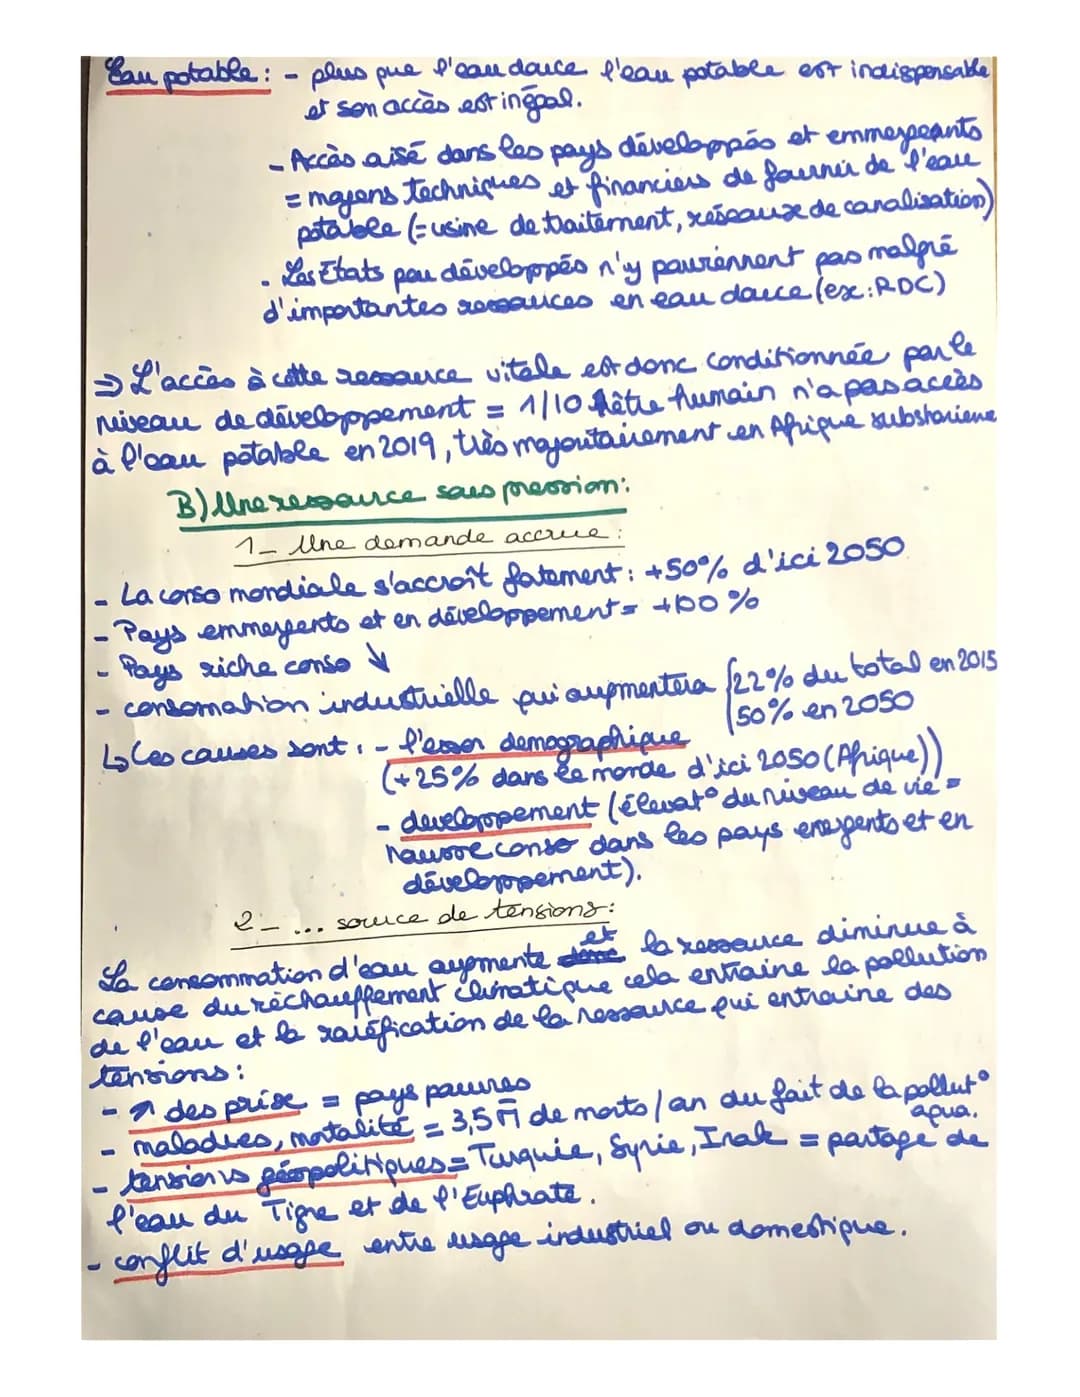 Eau potable : - plus que l'eau douce l'eau potable est indispensable
et son accès est inégal.
- Accès aisé dans les pays développés et emmergeants
= moyens techniques et financiers de fournir de l'eau
potable (= usine de traitement, réseaux de canalisation)
. Les États peu développés n'y parviennent pas malgré
d'importantes ressources en eau douce (ex : RDC)
⇒ L'accès à cette ressource vitale est donc conditionnée par le
niveau de développement = 1/10 être humain n'a pas accès
à l'eau potable en 2019, très majoritairement en Afrique substariene
B) Une ressource sous pression :
1- Une demande accrue :
- La conso mondiale s'accroît fatement : +50% d'ici 2050
- Pays emmergents et en développement = +100 %
- Pays riche conso ↓
- consomation industrielle qui augmentera { 22% du total en 2015
50% en 2050
↳ Les causes sont : - l'essor demographique
(+25% dans le monde d'ici 2050 (Afrique))
- developpement (élevat° du niveau de vie =
hausse conso dans les pays emergents et en
développement).
2- ... source de tensions :
La consommation d'eau augmente et la ressource diminue à
cause du réchauffement climatique cela entraine la pollution
de l'eau et la raréfication de la ressource qui entraine des
tensions :
- ↗ des prise = pays pauvres
- maladies, mortalité = 3,5 M de morts / an du fait de la pollut°
aqua.
- tensions géopolitiques = Turquie, Syrie, Irak = partage de
l'eau du Tigre et de l'Euphrate.
- conflit d'usage entre usage industriel ou domestique.